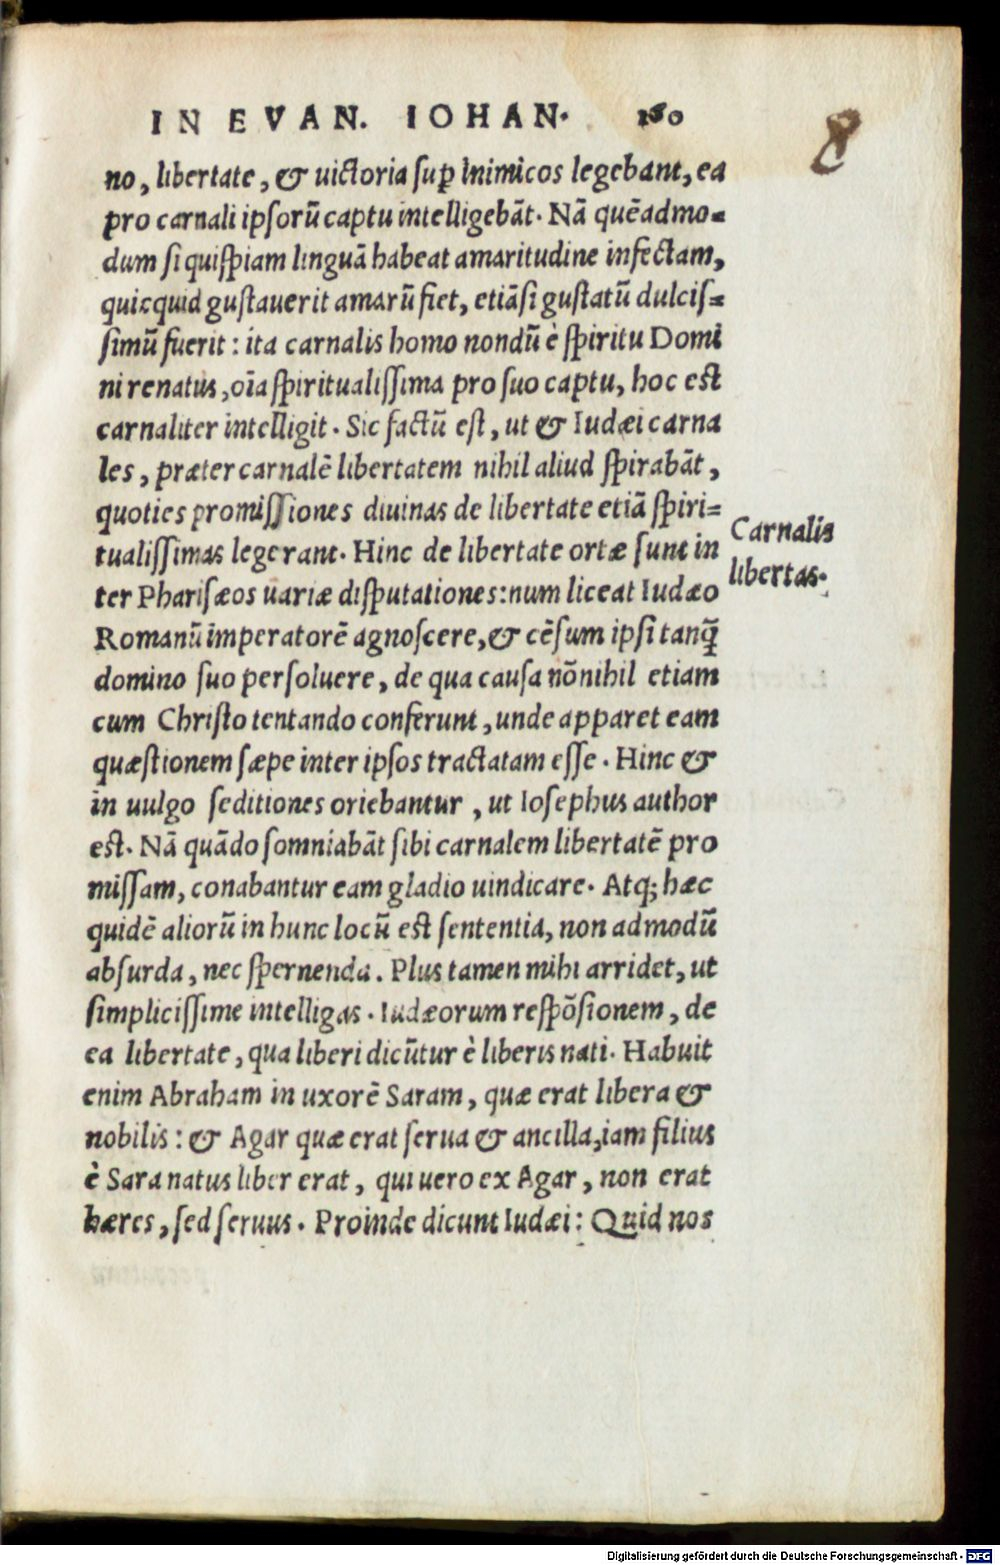 IN EVAN. IOHAN. 160
8
no, libertate, & uictoria sup̱ inimicos legebant, ea
pro carnali ipsorū captu intelligebāt. Nā quēadmo-
dum si quispiam linguā habeat amaritudine infectam,
quicquid gustauerit amarū fiet, etiāsi gustatū dulcis-
simū fuerit: ita carnalis homo nondū è spiritu Domi
ni renatus, oīa spiritualissima pro suo captu, hoc est
carnaliter intelligit. Sic factū est, ut & Iudæi carna
les, præter carnalē libertatem nihil aliud spirabāt,
quoties promissiones diuinas de libertate etiā spiri-
tualissimas legerant. Hinc de libertate ortæ sunt in
ter Pharisæos uariæ disputationes: num liceat Iudæo
Romanū imperatorē agnoscere, & cēsum ipsi tanq̄
domino suo persoluere, de qua causa nōnihil etiam
cum Christo tentando conferunt, unde apparet eam
quæstionem sæpe inter ipsos tractatam esse. Hinc &
in uulgo seditiones oriebantur, ut Iosephus author
est. Nā quādo somniabāt sibi carnalem libertatē pro
missam, conabantur eam gladio uindicare. Atq; hæc
quidē aliorū in hunc locū est sententia, non admodū
absurda, nec spernenda. Plus tamen mihi arridet, ut
simplicissime intelligas. Iudæorum respōsionem, de
ea libertate, qua liberi dicūtur è liberis nati. Habuit
enim Abraham in uxorē Saram, quæ erat libera &
nobilis: & Agar quæ erat serua & ancilla, iam filius
è Sara natus liber erat, qui uero ex Agar, non erat
hæres, sed seruus. Proinde dicunt Iudæi: Quid nos
Carnalis
libertas.
Digitalisierung gefördert durch die Deutsche Forschungsgemeinschaft - DFG